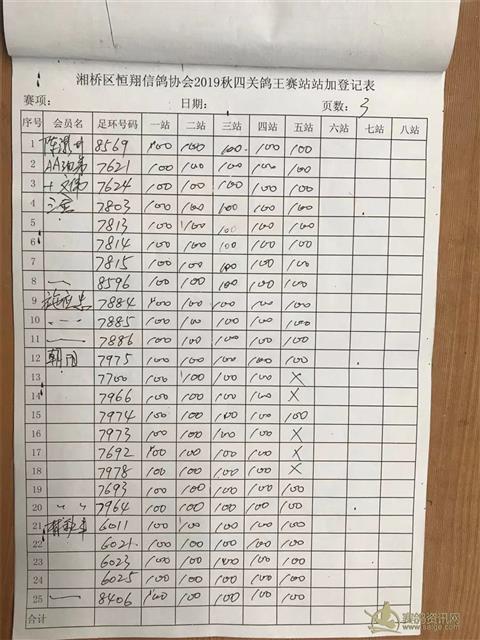 湘桥区恒翔信鸽协会2019秋四关鸽王赛站站加登记表
赛项: 日期: 页数: 3
序号 会员名 足环号码 一站 二站 三站 四站 五站 六站 七站 八站
1 8569 100 100 100 100 100
2 7621 100 100 100 100 100
3 7624 100 100 100 100 100
4 7803 100 100 100 100 100
5 7813 100 100 100 100 100
6 7814 100 100 100 100 100
7 7815 100 100 100 100 100
8 8596 100 100 100 100 100
9 7884 100 100 100 100 100
10 7885 100 100 100 100 100
11 7886 100 100 100 100 100
12 7975 100 100 100 100 100
13 7700 100 100 100 100 X
14 7966 100 100 100 100 X
15 7974 100 100 100 100 100
16 7973 100 100 100 100 X
17 7692 100 100 100 100 X
18 7978 100 100 100 100 X
19 7693 100 100 100 100 100
20 " " 7964 100 100 100 100 100
21 6011 100 100 100 100 100
22 6021 100 100 100 100 100
23 6023 100 100 100 100 100
24 6025 100 100 100 100 100
25 8406 100 100 100 100 100
合计
赛鸽资讯网
www.saige.com